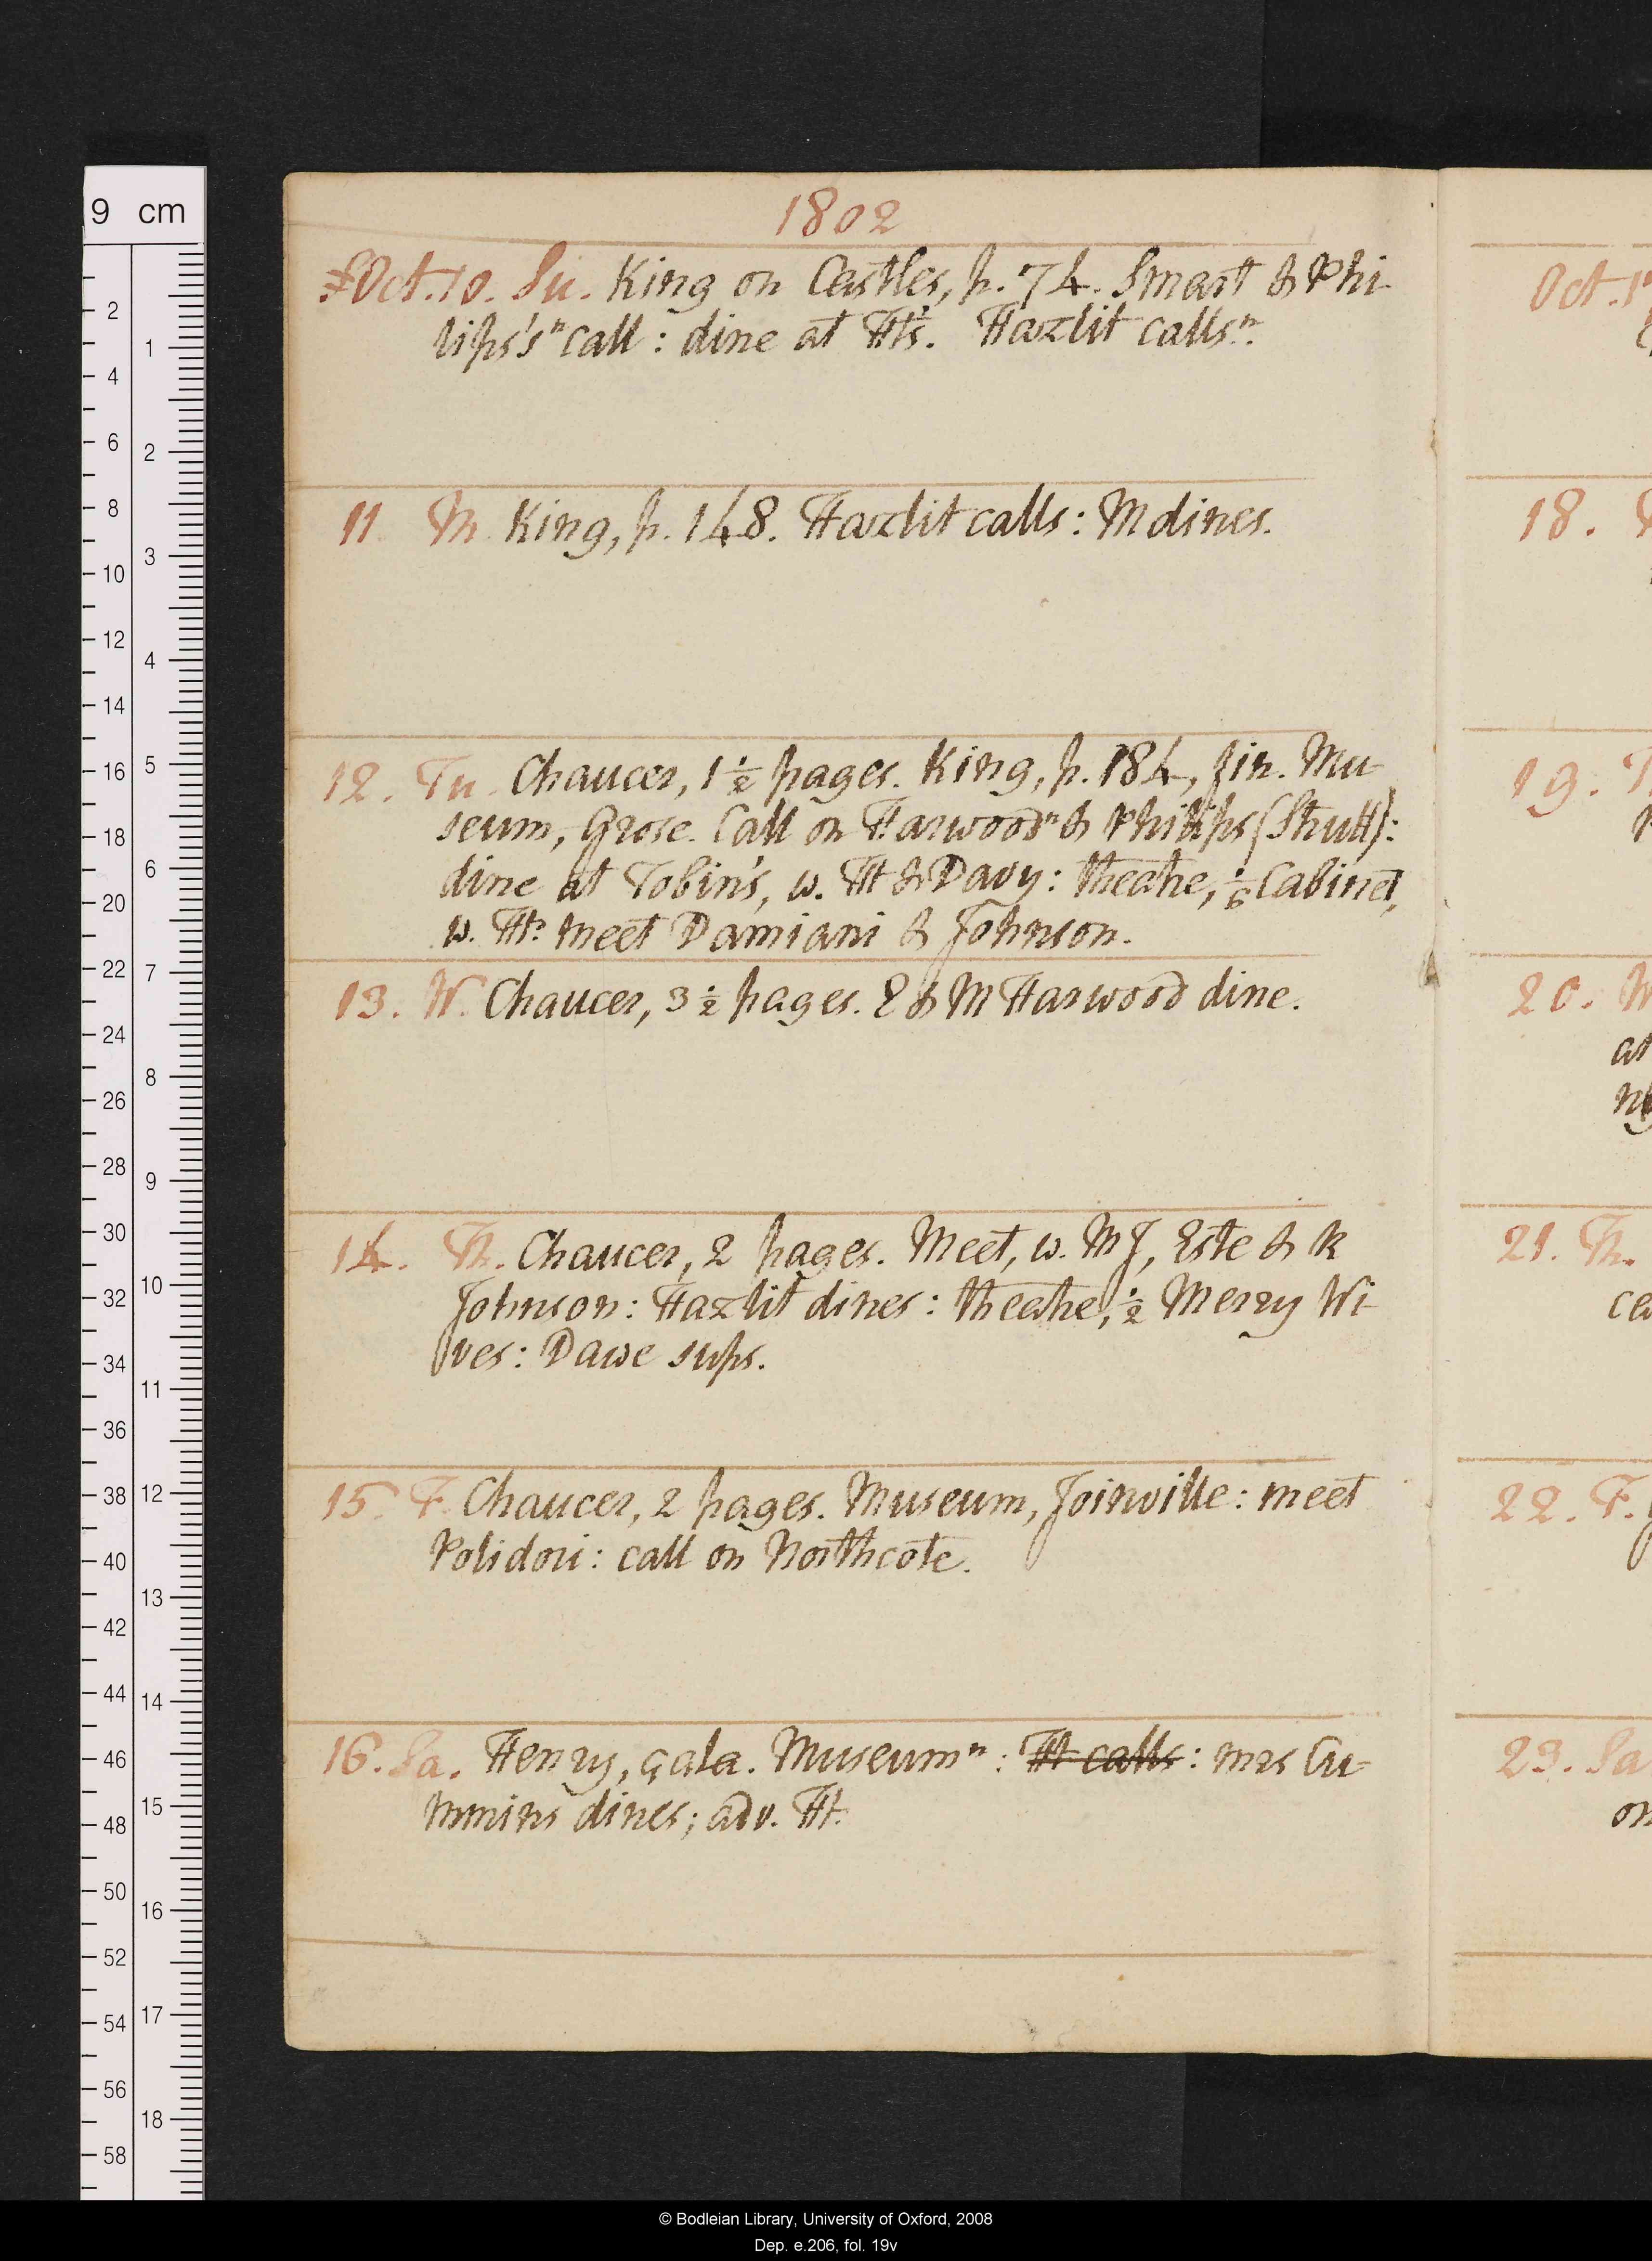 1802
Oct. 10. Su. King on Castles, p. 74. Smart & Phi-
lips's n call: dine at Ht's. Hazlit calls n.
11. M. King, p. 148. Hazlit calls: M dines.
12. Tu. Chaucer, 1 ½ pages. King, p. 184, fin. Mu-
seum, Grose. Call on Harwood n & Philips (Shutt):
dine at Tobin's, w. Ht & Davy: theatre, 1/6 Cabinet,
w. Ht: meet Damiani & Johnson.
13. W. Chaucer, 3 ½ pages. E & M Harwood dine.
14. Th. Chaucer, 2 pages. Meet, w. MJ, Este & R
Johnson: Hazlit dines: theatre, ½ Merry Wi-
ves: Dawe sups.
15. F. Chaucer, 2 pages. Museum, Joinville: meet
Polidori: call on Northcote.
16. Sa. Henry, çala. Museum n: Ht calls: mrs Cu-
mmins dines; adv. Ht.
Oct. 1
18.
19. T
20. W
at
21. Th.
ca
22. F.
23. Sa
on
9 cm
2
4
6
8
10
12
14
16
18
20
22
24
26
28
30
32
34
36
38
40
42
44
46
48
50
52
54
56
58
1
2
3
4
5
6
7
8
9
10
11
12
13
14
15
16
17
18
© Bodleian Library, University of Oxford, 2008
Dep. e.206, fol. 19v